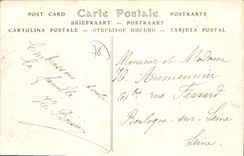 POST CARD Carte Postale POSTKARTE
BRIEFKAART — POSTKAART
CARTOLINA POSTALE — ОТКРЫТОЕ ПИСЬМО — TARJETA POSTAL
la famille
Monsieur et Madame
H. Aumounier
61 bis rue Fessard
Boulogne-sur-Seine
Seine